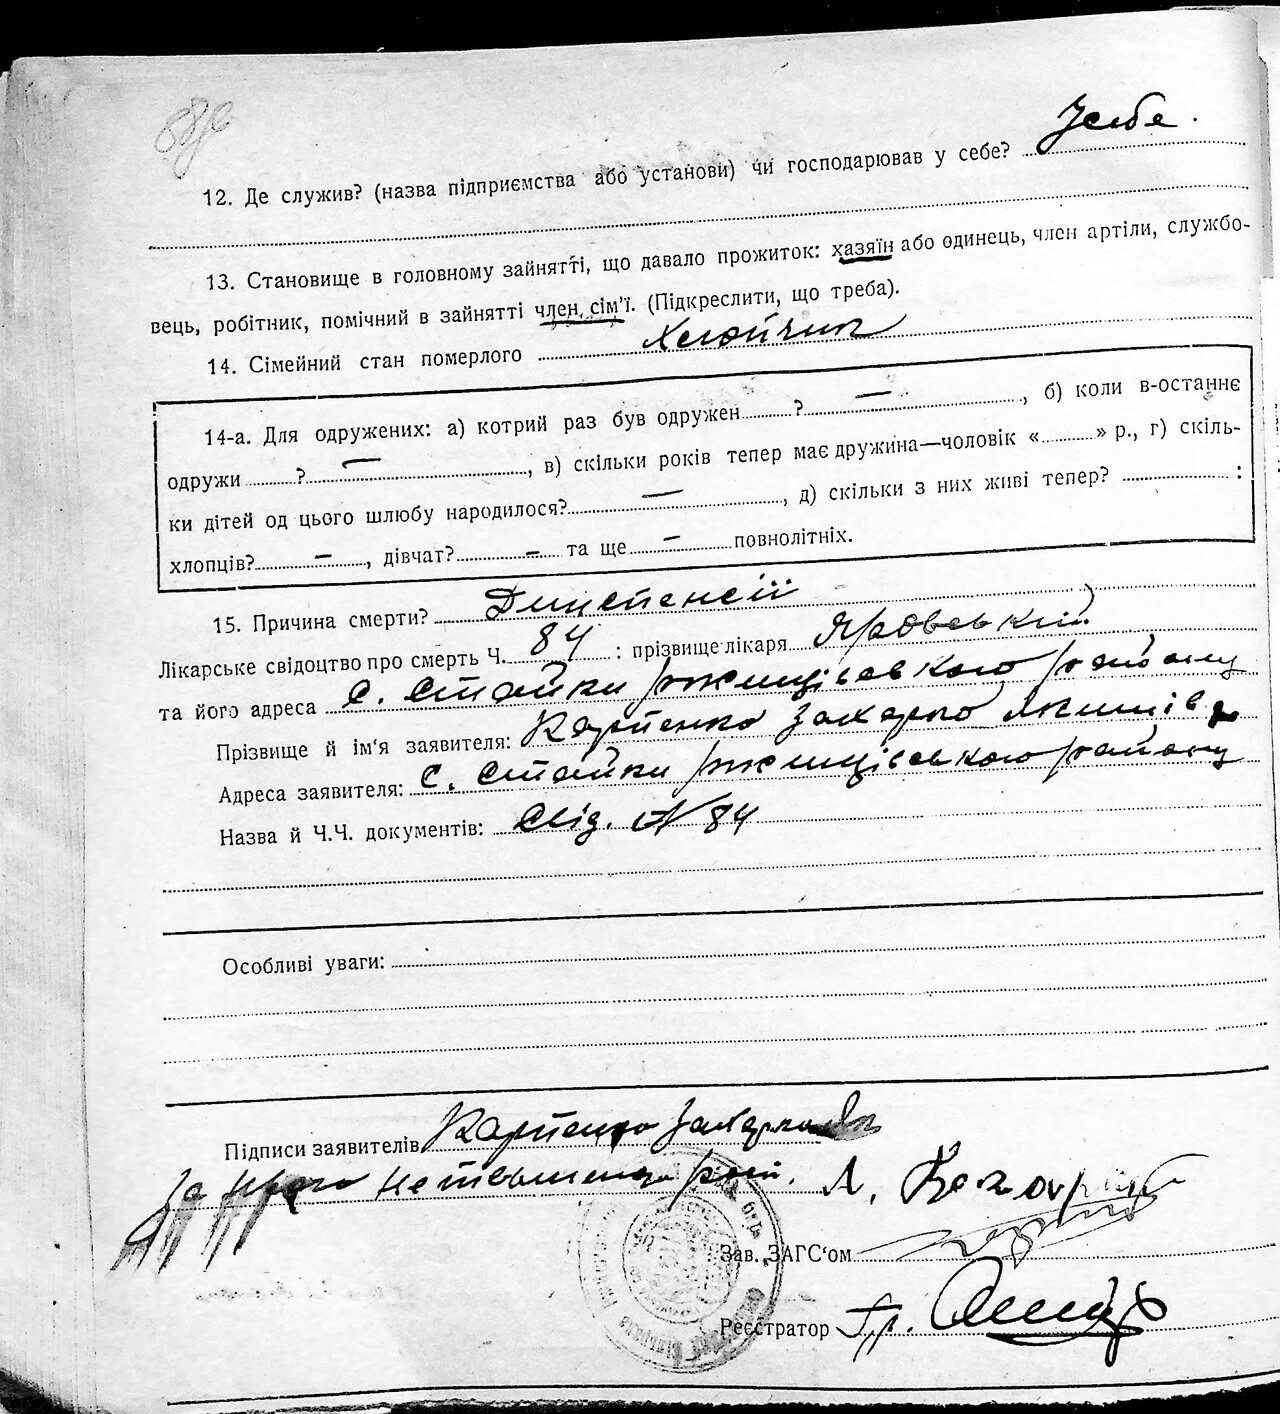 12. Де служив? (назва підприємства або установи) чи господарював у себе? У себе.
13. Становище в головному зайнятті, що давало прожиток: хазяїн або одинець, член артіли, службо-
вець, робітник, помічний в зайнятті член сім'ї. (Підкреслити, що треба).
14. Сімейний стан померлого Хлопчик
14-а. Для одружених: а) котрий раз був одружен ? —, б) коли в-останнє
одружи ? —, в) скільки років тепер має дружина—чоловік « » р., г) скіль-
ки дітей од цього шлюбу народилося? —, д) скільки з них живі тепер? :
хлопців? —, дівчат? — та ще — повнолітніх.
15. Причина смерти? Диспенсії
Лікарське свідоцтво про смерть Ч. 84 : прізвище лікаря Яровський
та його адреса с. Стайки ржищівського району
Прізвище й ім'я заявителя: Карпенко Захарко
Адреса заявителя: с. Стайки ржищівського району
Назва й Ч.Ч. документів: Свід. № 84
Особливі уваги:
Підписи заявителів Карпенко
за
Зав. ЗАГС'ом
Реєстратор